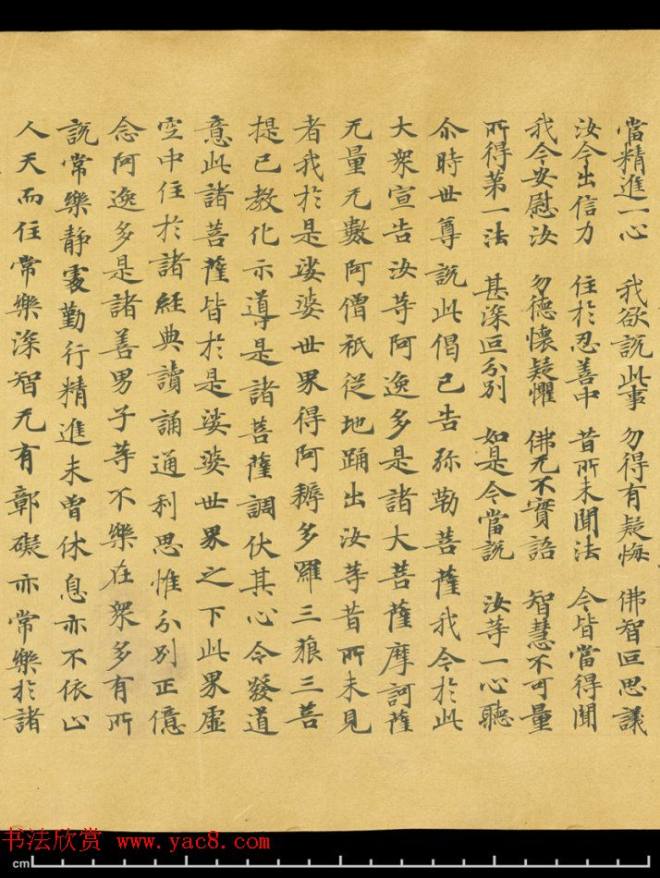 當精進一心 我欲説此事 勿得有疑悔 佛智叵思議
汝今出信力 住於忍善中 昔所未聞法 今皆當得聞
我今安慰汝 勿德懷疑懼 佛无不實語 智慧不可量
所得第一法 甚深叵分別 如是今當説 汝等一心聽
尒時世尊説此偈已告弥勒菩薩我今於此
大衆宣告汝等阿逸多是諸大菩薩摩訶薩
无量无數阿僧祇從地踊出汝等昔所未見
者我於是娑婆世界得阿耨多羅三藐三菩
提已教化示導是諸菩薩調伏其心令發道
意此諸菩薩皆於是娑婆世界之下此界虛
空中住於諸經典讀誦通利思惟分別正憶
念阿逸多是諸善男子等不樂在衆多有所
説常樂靜處勤行精進未曾休息亦不依止
人天而住常樂深智无有鄣礙亦常樂於諸
书法欣赏 www.yac8.com
cm